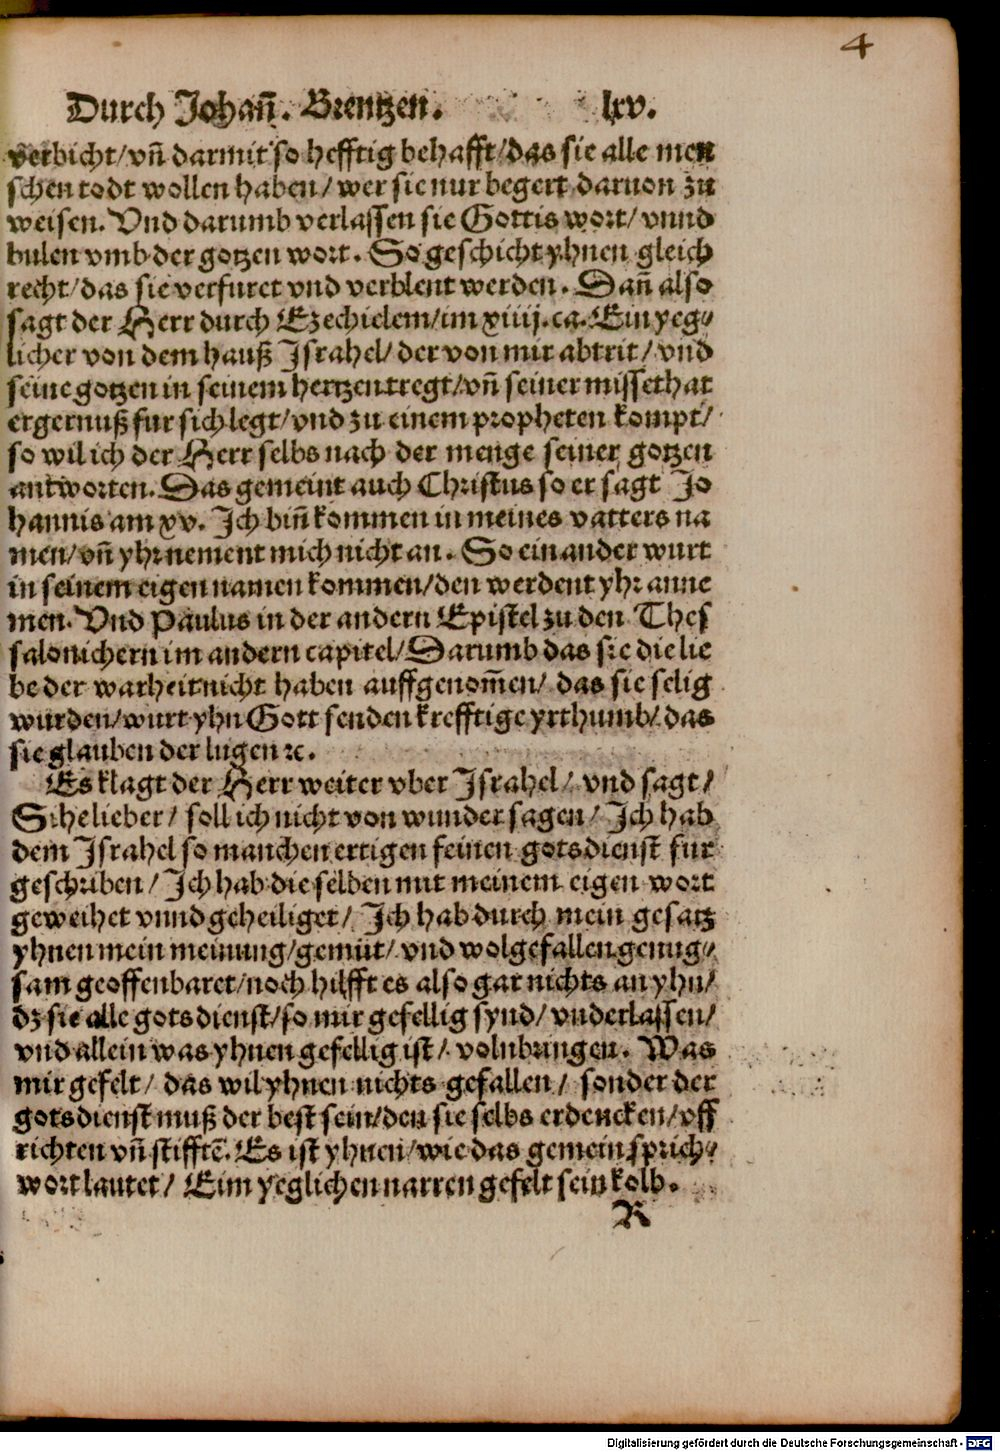 4
Durch Johan̄. Brentzen. lxv.
verbicht/vn̄ darmit so hefftig behafft/das sie alle men
schen todt wollen haben/wer sie nur begert daruon zu
weisen. Vnd darumb verlassen sie Gottis wort/vnnd
bulen vmb der gotzen wort. So geschicht yhnen gleich
recht/das sie verfuret vnd verblent werden. Dan̄ also
sagt der Herr durch Ezechielem/im xiiij. ca. Ein yeg⸗
licher von dem hauß Jsrahel/der von mir abtrit/vnd
seine gotzen in seinem hertzen tregt/vn̄ seiner missethat
ergernuß fur sich legt/vnd zu einem propheten kompt/
so wil ich der Herr selbs nach der menge seiner gotzen
antworten. Das gemeint auch Christus so er sagt Jo
hannis am xv. Jch bin̄ kommen in meines vatters na
men/vn̄ yhr nement mich nicht an. So ein ander wurt
in seinem eigen namen kommen/den werdent yhr anne
men. Vnd Paulus in der andern Epistel zu den Thes
salonichern im andern capitel/Darumb das sie die lie
be der warheit nicht haben auffgenom̄en/ das sie selig
wurden/wurt yhn Gott senden krefftige yrthumb/das
sie glauben der lugen ꝛc.
Es klagt der Herr weiter vber Jsrahel/ vnd sagt/
Sihe lieber/ soll ich nicht von wunder sagen/ Jch hab
dem Jsrahel so manchen ertigen feinen gotsdienst fur
geschriben/Jch hab die selben mit meinem eigen wort
geweihet vnnd geheiliget/ Jch hab durch mein gesatz
yhnen mein meinung/gemüt/ vnd wolgefallen genug⸗
sam geoffenbaret/noch hilfft es also gar nichts an yhn/
dz sie alle gotsdienst/so mir gefellig synd/vnderlassen/
vnd allein was yhnen gefellig ist/ volnbringen. Was
mir gefelt/ das wil yhnen nichts gefallen/ sonder der
gotsdienst muß der best sein/den sie selbs erdencken/vff
richten vn̄ stifftē. Es ist yhnen/wie das gemein sprich⸗
wort lautet/ Eim yeglichen narren gefelt sein kolb.
R
Digitalisierung gefördert durch die Deutsche Forschungsgemeinschaft - DFG